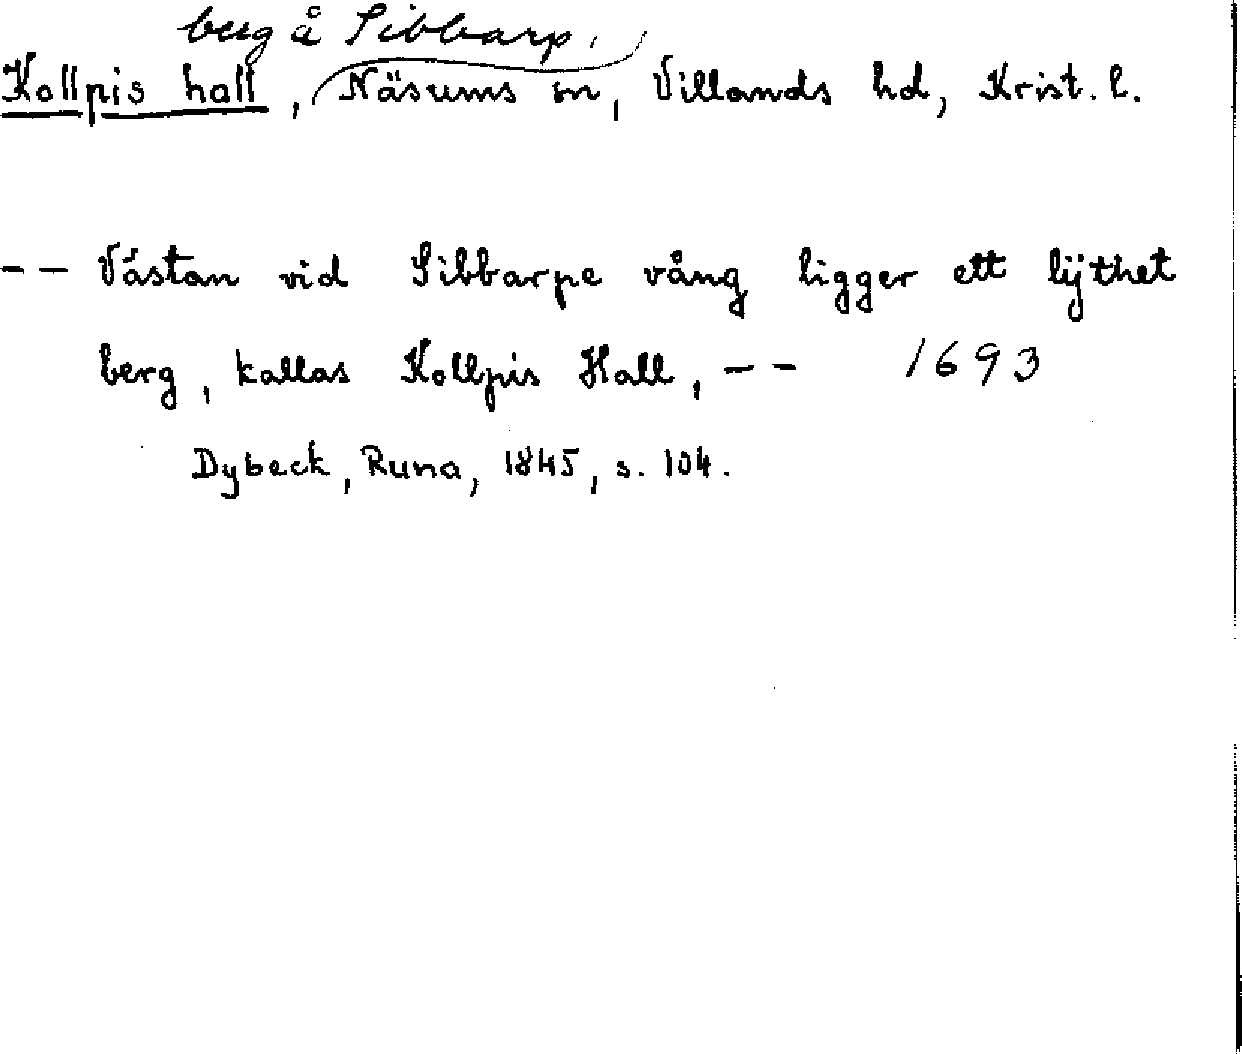 berg å Sibbarp,
Kollpis hall, Näsums sn, Villands hd, Krist. l.
-- Västan vid Sibbarpe vång ligger ett lÿthet
berg, kallas Kollpis Hall, -- 1693
Dybeck, Runa, 1845, s. 104.